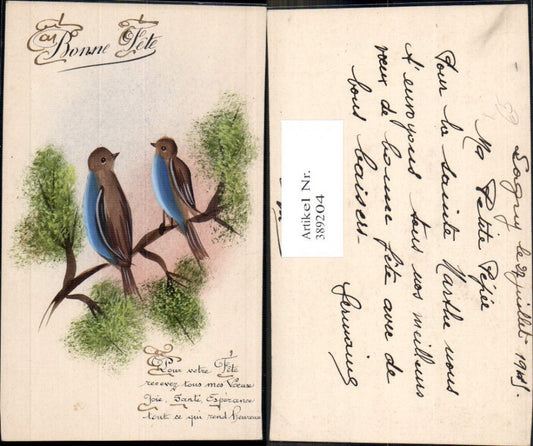 Bonne Fête
Pour votre Fête
recevez tous mes Vœux
Joie, Santé, Espérance
tout ce qui rend heureux
Artikel Nr.
389204
Lagny le 27 juillet 1941.
Ma Petite Pépée
Pour la sainte Marthe nous
t'envoyons tous nos meilleurs
vœux de bonne fête avec de
bons baisers
Germaine